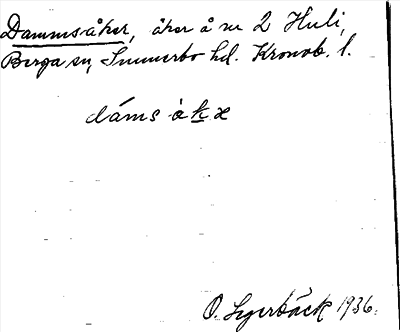 Dammsåker, åker å nr 2 Huli,
Berga sn, Sunnerbo hd. Kronob. l.
dáms å̀kæ
O. Lyerbäck 1936.